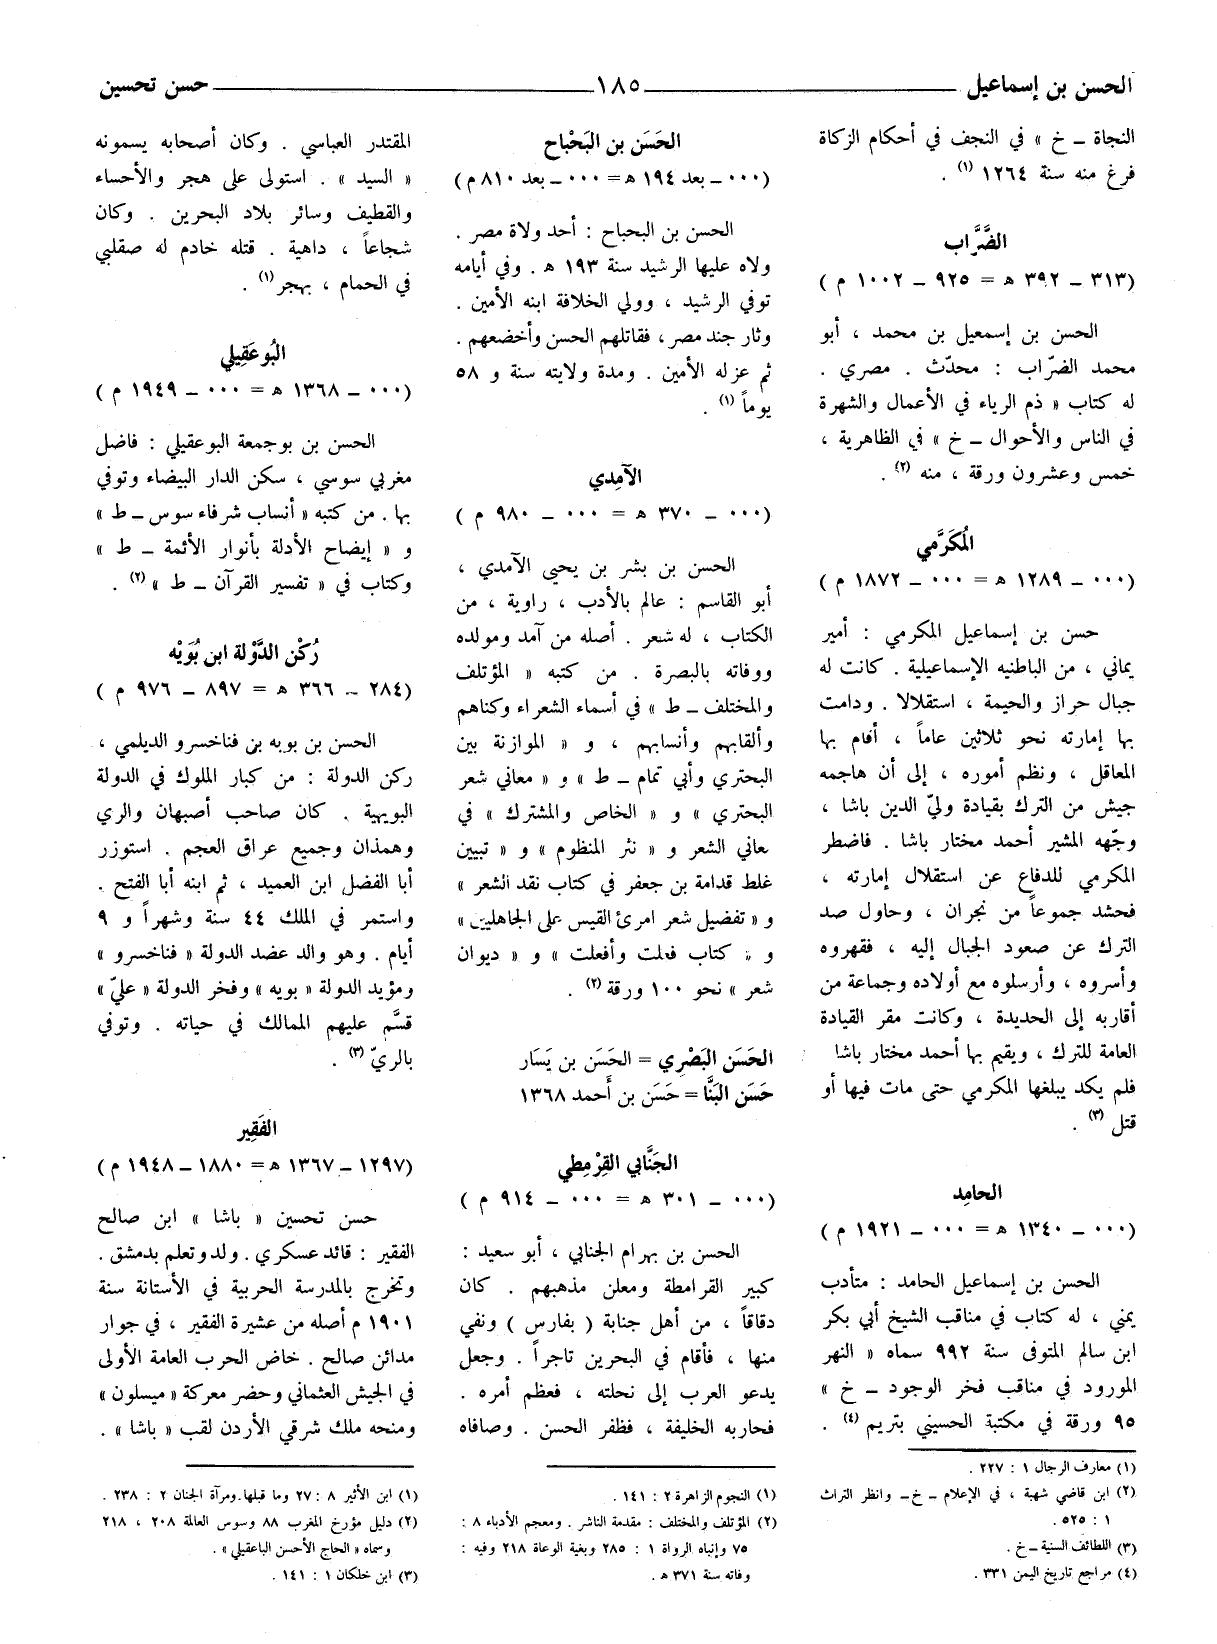 الحسن بن إسماعيل ١٨٥ حسن تحسين
النجاة ـ خ » في النجف في أحكام الزكاة
فرغ منه سنة ١٢٦٤ (١) .
الضَّرَّاب
(٣١٣ ـ ٣٩٢ ھ = ٩٢٥ ـ ١٠٠٢ م )
الحسن بن إسمعيل بن محمد ، أبو
محمد الضرّاب : محدّث . مصري .
له كتاب « ذم الرياء في الأعمال والشهرة
في الناس والأحوال ـ خ » في الظاهرية ،
خمس وعشرون ورقة ، منه (٢) .
المُكَرَّمي
(٠٠٠ ـ ١٢٨٩ ھ = ٠٠٠ ـ ١٨٧٢ م )
حسن بن إسماعيل المكرمي : أمير
يماني ، من الباطنيه الإسماعيلية . كانت له
جبال حراز والحيمة ، استقلالا . ودامت
بها إمارته نحو ثلاثين عاماً ، أقام بها
المعاقل ، ونظم أموره ، إلى أن هاجمه
جيش من الترك بقيادة وليّ الدين باشا ،
وجّهه المشير أحمد مختار باشا . فاضطر
المكرمي للدفاع عن استقلال إمارته ،
فحشد جموعاً من نجران ، وحاول صد
الترك عن صعود الجبال إليه ، فقهروه
وأسروه ، وأرسلوه مع أولاده وجماعة من
أقاربه إلى الحديدة ، وكانت مقر القيادة
العامة للترك ، ويقيم بها أحمد مختار باشا
فلم يكد يبلغها المكرمي حتى مات فيها أو
قتل (٣) .
الحامِد
(٠٠٠ ـ ١٣٤٠ ھ = ٠٠٠ ـ ١٩٢١ م )
الحسن بن إسماعيل الحامد : متأدب
يمني ، له كتاب في مناقب الشيخ أبي بكر
ابن سالم المتوفى سنة ٩٩٢ سماه « النهر
المورود في مناقب فخر الوجود ـ خ »
٩٥ ورقة في مكتبة الحسيني بتريم (٤) .
(١) معارف الرجال ١ : ٢٢٧ .
(٢) ابن قاضي شهبة ، في الإعلام ـ خ ـ وانظر التراث
١ : ٥٢٥ .
(٣) اللطائف السنية ـ خ .
(٤) مراجع تاريخ اليمن ٣٣١ .
الحَسَن بن البَحْباح
(٠٠٠ ـ بعد ١٩٤ ھ = ٠٠٠ ـ بعد ٨١٠ م)
الحسن بن البحباح : أحد ولاة مصر .
ولاه عليها الرشيد سنة ١٩٣ ھ . وفي أيامه
توفي الرشيد ، وولي الخلافة ابنه الأمين .
وثار جند مصر ، فقاتلهم الحسن وأخضعهم .
ثم عزله الأمين . ومدة ولايته سنة و ٥٨
يوماً (١) .
الآمِدي
(٠٠٠ ـ ٣٧٠ ھ = ٠٠٠ ـ ٩٨٠ م )
الحسن بن بشر بن يحيى الآمدي ،
أبو القاسم : عالم بالأدب ، راوية ، من
الكتاب ، له شعر . أصله من آمد ومولده
ووفاته بالبصرة . من كتبه « المؤتلف
والمختلف ـ ط » في أسماء الشعراء وكناهم
وألقابهم وأنسابهم ، و « الموازنة بين
البحتري وأبي تمام ـ ط » و « معاني شعر
البحتري » و « الخاص والمشترك » في
معاني الشعر و « نثر المنظوم » و « تبيين
غلط قدامة بن جعفر في كتاب نقد الشعر »
و « تفضيل شعر امرئ القيس على الجاهليين »
و « كتاب فعلت وأفعلت » و « ديوان
شعر » نحو ١٠٠ ورقة (٢) .
الحَسَن البَصْري = الحَسَن بن يَسَار
حَسَن البَنَّا = حَسَن بن أَحمد ١٣٦٨
الجَنَّابي القِرْمِطي
(٠٠٠ ـ ٣٠١ ھ = ٠٠٠ ـ ٩١٤ م )
الحسن بن بهرام الجنابي ، أبو سعيد :
كبير القرامطة ومعلن مذهبهم . كان
دقاقاً ، من أهل جنابة ( بفارس ) ونفي
منها ، فأقام في البحرين تاجراً . وجعل
يدعو العرب إلى نحلته ، فعظم أمره .
فحاربه الخليفة ، فظفر الحسن . وصافاه
(١) النجوم الزاهرة ٢ : ١٤١ .
(٢) المؤتلف والمختلف : مقدمة الناشر . ومعجم الأدباء ٨ :
٧٥ وإنباه الرواة ١ : ٢٨٥ وبغية الوعاة ٢١٨ وفيه :
وفاته سنة ٣٧١ ھ .
المقتدر العباسي . وكان أصحابه يسمونه
« السيد » . استولى على هجر والأحساء
والقطيف وسائر بلاد البحرين . وكان
شجاعاً ، داهية . قتله خادم له صقلبي
في الحمام ، بهجر (١) .
البُوعَقِيلي
(٠٠٠ ـ ١٣٦٨ ھ = ٠٠٠ ـ ١٩٤٩ م )
الحسن بن بوجمعة البوعقيلي : فاضل
مغربي سوسي ، سكن الدار البيضاء وتوفي
بها . من كتبه « أنساب شرفاء سوس ـ ط »
و « إيضاح الأدلة بأنوار الأئمة ـ ط »
وكتاب في « تفسير القرآن ـ ط » (٢) .
رُكْن الدَّوْلة ابن بُوَيْه
(٢٨٤ ـ ٣٦٦ ھ = ٨٩٧ ـ ٩٧٦ م )
الحسن بن بويه بن فناخسرو الديلمي ،
ركن الدولة : من كبار الملوك في الدولة
البويهية . كان صاحب أصبهان والري
وهمذان وجميع عراق العجم . استوزر
أبا الفضل ابن العميد ، ثم ابنه أبا الفتح .
واستمر في الملك ٤٤ سنة وشهراً و ٩
أيام . وهو والد عضد الدولة « فناخسرو »
ومؤيد الدولة « بويه » وفخر الدولة « عليّ »
قسَّم عليهم الممالك في حياته . وتوفي
بالريّ (٣) .
الفَقِير
(١٢٩٧ ـ ١٣٦٧ ھ = ١٨٨٠ ـ ١٩٤٨ م )
حسن تحسين « باشا » ابن صالح
الفقير : قائد عسكري . ولد وتعلم بدمشق .
وتخرج بالمدرسة الحربية في الأستانة سنة
١٩٠١ م أصله من عشيرة الفقير ، في جوار
مدائن صالح . خاض الحرب العامة الأولى
في الجيش العثماني وحضر معركة « ميسلون »
ومنحه ملك شرقي الأردن لقب « باشا » .
(١) ابن الأثير ٨ : ٢٧ وما قبلها. ومرآة الجنان ٢ : ٢٣٨ .
(٢) دليل مؤرخ المغرب ٨٨ وسوس العالمة ٢٠٨ ، ٢١٨
وسماه « الحاج الأحسن الباعقيلي » .
(٣) ابن خلكان ١ : ١٤١ .